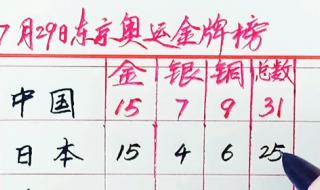 7月29日东京奥运金牌榜
金 银 铜 总数
中国 15 7 9 31
日本 15 4 6 25